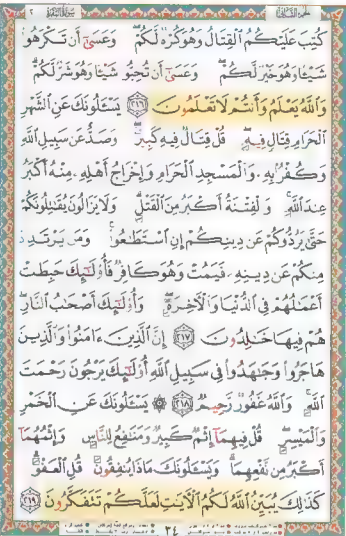 الجزء الثاني سورة البقرة ٢
كُتِبَ عَلَيْكُمُ الْقِتَالُ وَهُوَ كُرْهٌ لَّكُمْ ۖ وَعَسَىٰٓ أَن تَكْرَهُوا۟
شَيْـًٔا وَهُوَ خَيْرٌ لَّكُمْ ۖ وَعَسَىٰٓ أَن تُحِبُّوا۟ شَيْـًٔا وَهُوَ شَرٌّ لَّكُمْ ۗ
وَاللَّهُ يَعْلَمُ وَأَنتُمْ لَا تَعْلَمُونَ ٢١٦ يَسْـَٔلُونَكَ عَنِ الشَّهْرِ
الْحَرَامِ قِتَالٍ فِيهِ ۖ قُلْ قِتَالٌ فِيهِ كَبِيرٌ ۖ وَصَدٌّ عَن سَبِيلِ اللَّهِ
وَكُفْرٌۢ بِهِۦ وَالْمَسْجِدِ الْحَرَامِ وَإِخْرَاجُ أَهْلِهِۦ مِنْهُ أَكْبَرُ
عِندَ اللَّهِ ۚ وَالْفِتْنَةُ أَكْبَرُ مِنَ الْقَتْلِ ۗ وَلَا يَزَالُونَ يُقَـٰتِلُونَكُمْ
حَتَّىٰ يَرُدُّوكُمْ عَن دِينِكُمْ إِنِ اسْتَطَـٰعُوا۟ ۚ وَمَن يَرْتَدِدْ
مِنكُمْ عَن دِينِهِۦ فَيَمُتْ وَهُوَ كَافِرٌ فَأُو۟لَـٰٓئِكَ حَبِطَتْ
أَعْمَـٰلُهُمْ فِى الدُّنْيَا وَالْـَٔاخِرَةِ ۖ وَأُو۟لَـٰٓئِكَ أَصْحَـٰبُ النَّارِ ۖ
هُمْ فِيهَا خَـٰلِدُونَ ٢١٧ إِنَّ الَّذِينَ ءَامَنُوا۟ وَالَّذِينَ
هَاجَرُوا۟ وَجَـٰهَدُوا۟ فِى سَبِيلِ اللَّهِ أُو۟لَـٰٓئِكَ يَرْجُونَ رَحْمَتَ
اللَّهِ ۚ وَاللَّهُ غَفُورٌ رَّحِيمٌ ٢١٨ ۞ يَسْـَٔلُونَكَ عَنِ الْخَمْرِ
وَالْمَيْسِرِ ۖ قُلْ فِيهِمَآ إِثْمٌ كَبِيرٌ وَمَنَـٰفِعُ لِلنَّاسِ وَإِثْمُهُمَآ
أَكْبَرُ مِن نَّفْعِهِمَا ۗ وَيَسْـَٔلُونَكَ مَاذَا يُنفِقُونَ قُلِ الْعَفْوَ ۗ
كَذَٰلِكَ يُبَيِّنُ اللَّهُ لَكُمُ الْـَٔايَـٰتِ لَعَلَّكُمْ تَتَفَكَّرُونَ ٢١٩
٣٤